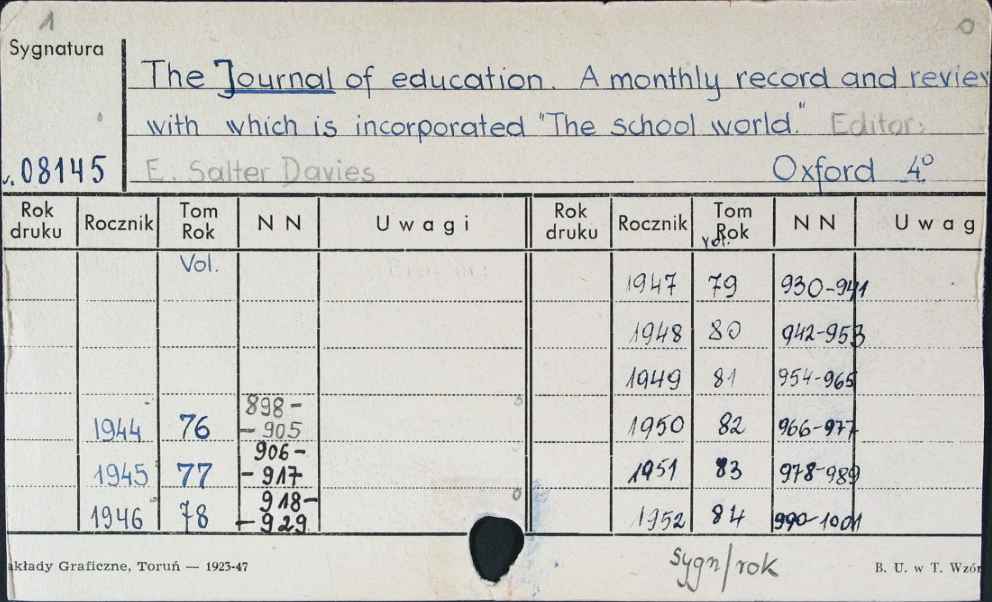 1
Sygnatura
The Journal of education. A monthly record and review
with which is incorporated "The school world." Editor:
08145 E. Salter Davies Oxford 4°
Rok druku Rocznik Tom Rok NN Uwagi Rok druku Rocznik Tom Rok NN Uwag
Vol. Vol.
1947 79 930-941
1948 80 942-953
1949 81 954-965
1944 76 898-905 1950 82 966-977
1945 77 906-917 1951 83 978-989
1946 78 918-929 1952 84 990-1001
sygn/rok
akłady Graficzne, Toruń — 1923-47 B. U. w T. Wzór